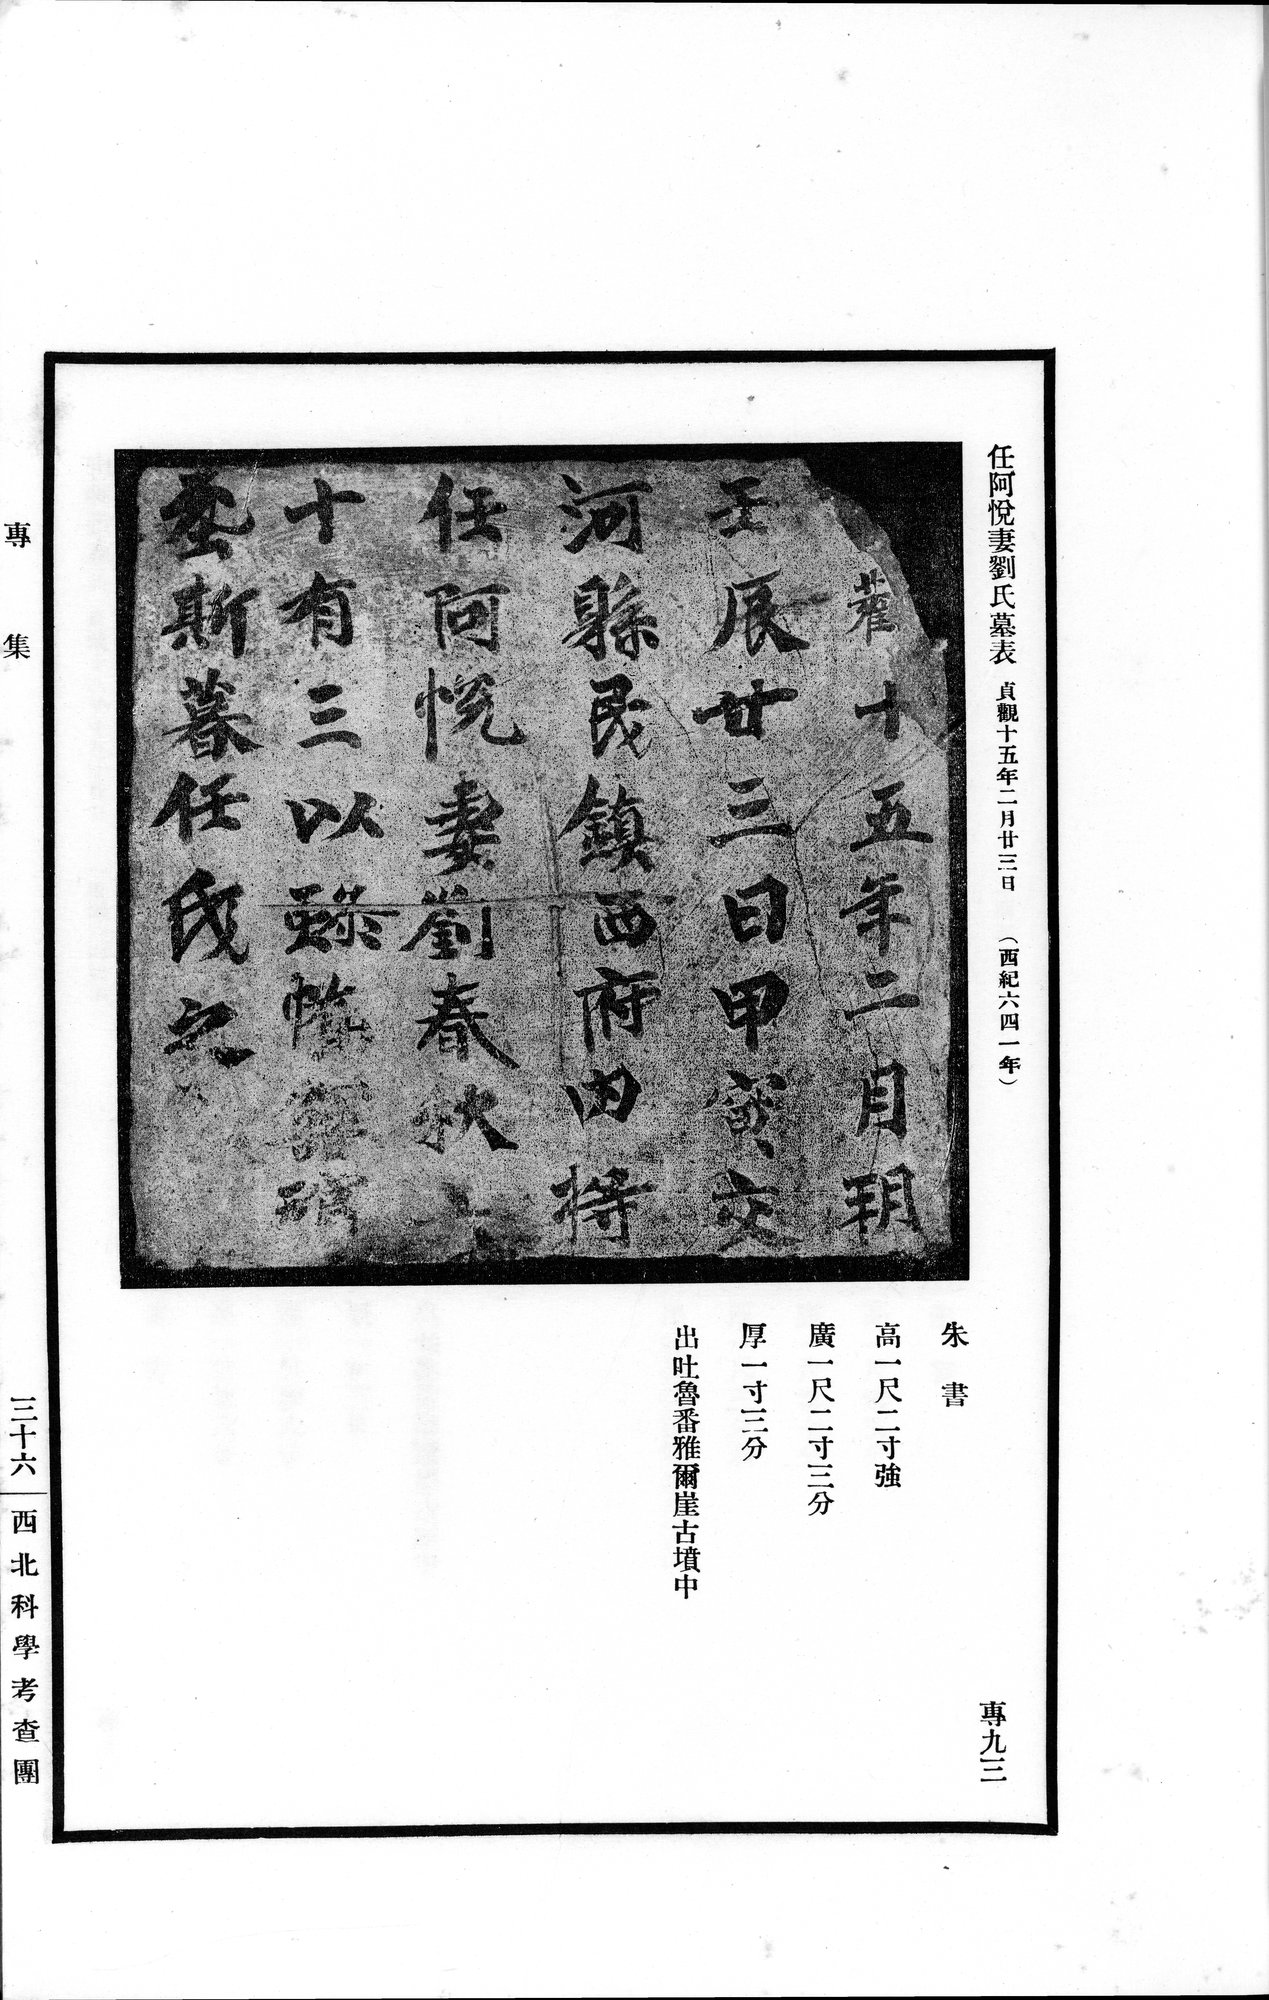 任阿悅妻劉氏墓表 貞觀十五年二月廿三日 （西紀六四一年）
十五年二月
壬辰廿三日甲寅交
河縣民鎮西府內將
任阿悅妻劉春秋
十有三以
斯墓任氏之
朱書
高一尺二寸強
廣一尺二寸三分
厚一寸三分
出吐魯番雅爾崖古墳中
專九三
專集
三十六
西北科學考查團